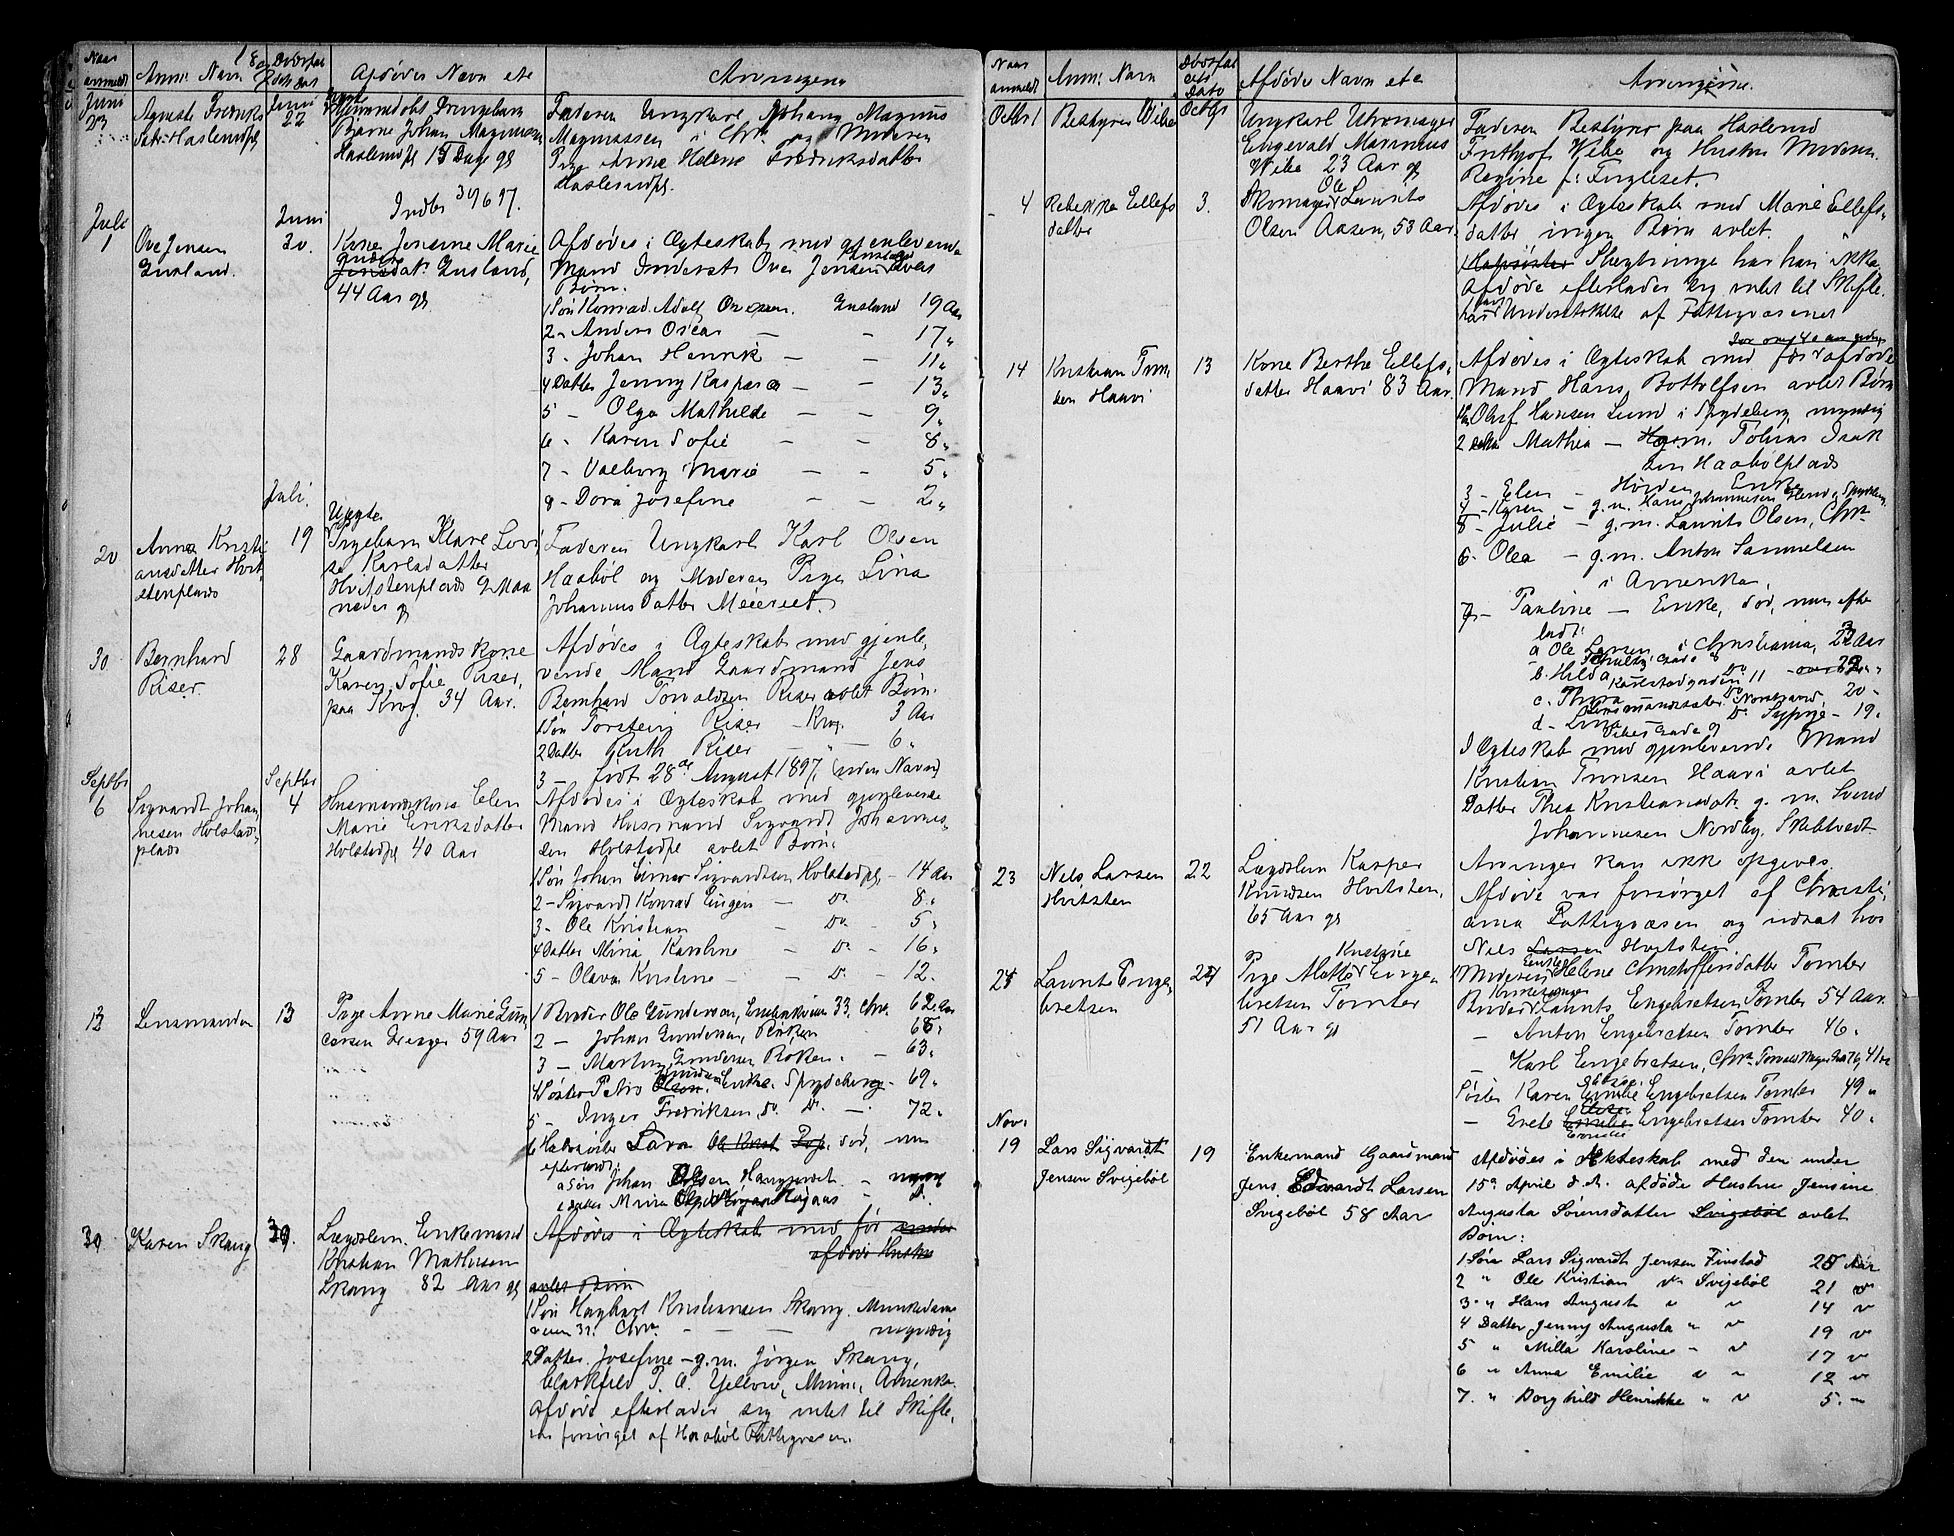 Naar anmeldt
Anm: Navn
Dødsfaldets Dato
Afdødes Navn etc
Arvingerne
Juni 23
Agneste Fredriksdatr Haslemdpl
Juni 22
Bjarne Johan Magnussen
Haslemdpl 15 Dage gl
Faderen Ungkarl Johan Magnus
Magnussen i Chr. og Moderen
Pige Anna Helene Fredriksdatter
Haslemdpl.
Indb. 30/6 97.
Juli 1
Ove Jensen
Ensland.
Juni 30.
Kone Jensine Marie
Ensland,
44 Aar gl
Afdødes i Ægteskab med gjenlevende
Mand Inderst Ove Jensen Enslands avlet
Børn.
1 Søn Konrad Adolf Ovesen. Enslund 19 Aar
2 - Anders Oscar — — 17 "
3 - Johan Henrik — — 11 "
4 Datter Jenny Kaspara — — 13 "
5 - Olga Mathilde — — 9 "
6 - Karen Sofie — — 8 "
7 - Valborg Marie — — 5 "
8 - Dora Josefine — — 2 "
20
Anna Kristiansdatter Hvitstenplads
Juli. 19
Uægte
Pigebarn Klare Lovise Karlsdatter
Hvitstenplads 9 Maaneder gl
Faderen Ungkarl Karl Olsen
Haabøl og Moderen Pige Lina
Johannesdatter Meieriet.
30
Bernhard
Riser.
28
Gaardmandskone
Karen Sofie Riser,
paa Krog. 34 Aar.
Afdødes i Ægteskab med gjenlevende Mand Gaardmand Jens
Bernhard Torvaldsen Riser avlet Børn.
1 Søn Torstein Riser — Krog. 3 Aar
2 Datter Ruth Riser — " — 6 "
3 — født 28de August 1897, (uden Navn)
Septbr 6
Sigvardt Johannesen Holstadplads
Septbr 4
Husmandskone Elen
Marie Eriksdatter
Holstadpl 40 Aar
Afdødes i Ægteskab med gjenlevende
Mand Husmand Sigvardt Johannesen Holstadpl avlet Børn:
1 Søn Johan Einar Sigvardtsen Holstadpl, — 14 Aar
2 - Sigvardt Konrad Eugen — Do. 8 "
3 - Ole Kristian — Do — 5 "
4 Datter Mina Karoline — Do — 16 "
5 - Olava Kristine — — Do. — 12.
13
Lensmanden
13
Pige Anne Marie Gundersen Dreger 59 Aar
1 Broder Ole Gundersen, 33, Chr. 62 Aar
2 — Johan Gundersen, Røken — 68 "
3 — Martin Gundersen Røken. — 63 "
4 Søster Petra Enke. Spydeberg — 69 "
5 - Inger Fredriksen, Do. Do. — 72 "
6 Halvsøster Lava død,
efterladt:
a Søn Johan Olsen
39
Karen Skaug
Lægdslem. Enkemand
Kristian Mathisen
Skaug 82 Aar gl
Afdødes i Ægteskab med før
afdøde Hustru
avlet Børn
1 Søn Hagbart Kristiansen Skaug. Munkedamsveien 37. Chr. — — — myndig
2 Datter Josefine — g. m. Jørgen Skaug,
Clarkfield P. O. Yellow, Minn, Amerika.
Afdøde efterlader sig intet til Skifte,
forsørget af Haabøl Fattigvæsen.
Naar anmeldt
Anm: Navn
Dødsfaldets Dato
Afdødes Navn etc
Arvingerne.
Octbr 1
Bestyrer Wibe
Octbr
Ungkarl Uhrmager
Engevald Marinius
Wibe 23 Aar gl
Faderen Bestyrer paa Haslemd
Frithjof Wibe og Hustru Moderen
Regine f: Engliset.
4
Rebekka Ellefsdatter
3.
Skomager Ole Laurits
Olsen Aasen, 53 Aar.
Afdødes i Ægteskab med Marie Ellefsdatter ingen Børn avlet.
Halvsøster Slægtninge har han ikke.
Afdøde efterlader sig intet til Skifte.
Understøttelse af Fattigvæsenet
14
Kristian Tronsen Haavi
13
Kone Berthe Ellefsdatter Haavi 83 Aar.
Afdødes i Ægteskab med før afdøde
Mand Hans Bottolfsen avlet Børn
1 Søn Oluf Hansen Lund i Spydeberg myndig
2 Datter Mathea — g. m. Tobias Isaksen Haabølplads
3 - Elen — Enke
4 - Karen — g. m. Hans Johannesen Spydeberg
5 - Julie — g. m. Laurits Olsen, Chra
6 - Olea — g. m. Anton Samuelsen
i Amerika.
7 — Pauline — Enke, død, men efterladt:
a Ole Larsen, i Christiania, 23 Aar
b. Hilda
c. Thora 20 —
d — Lina 19.
I Ægteskab med gjenlevende Mand
Kristian Tronsen Haavi avlet
Datter Thea Kristiansdatr g. m. Svend
Johannesen Nordby, Skibtvedt
23
Nils Larsen
Hvitsten
22
Lægdslem Kasper
Knudsen Hvitsten,
65 Aar gl
Arvinger kan ikke opgives
Afdøde var forsørget af Christiania Fattigvæsen og udsat hos
Nils Larsen Hvitsten
25
Laurits Engebretsen
24
Pige Mathea Kristine Engebretsen Tomter
51 Aar gl
Moderen Enke Helene Christoffersdatter Tomter
Broder Laurits Engebretsen Tomter 54 Aar.
— Anton Engebretsen Tomter 46 "
— Karl Engebretsen, Chra 41
Søster Karen Engebretsen Tomter 49 "
— Grete Emilie Engebretsen Tomter 40 "
Novr 19
Lars Sigvardt
Jensen Svigebøl
19
Enkemand Gaardmand
Jens Edvardt Larsen
Svigebøl 58 Aar
Afdødes i Ækteskab med den under
15de April d. A. afdøde Hustru Jensine
Augusta Sørensdatter Svigebøl avlet
Børn:
1 Søn Lars Sigvardt Jensen Finstad 25 Aar
2 " Ole Kristian do Svigebøl 21 "
3 " Hans August " " 14 "
4 Datter Jenny Augusta " " 19 "
5 " Milla Karoline " " 17 "
6 " Anna Emilie " " 12 "
7. " Borghild Henrikke " " 5. "